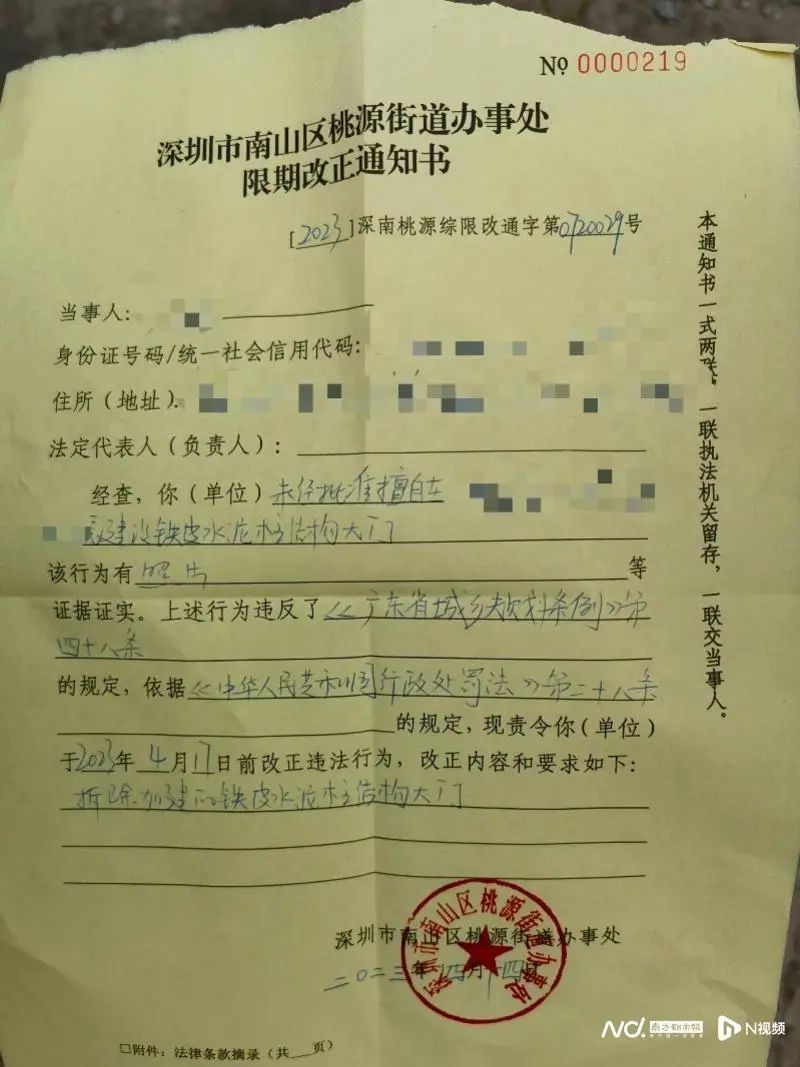 № 0000219
深圳市南山区桃源街道办事处
限期改正通知书
[2023]深南桃源综限改通字第0720029号
当事人:
身份证号码/统一社会信用代码:
住所(地址).
法定代表人(负责人):
经查,你(单位)未经批准擅自在
建设铁皮水泥柱结构大门
该行为有 等
证据证实。上述行为违反了《广东省城乡规划条例》第
四十八条
的规定,依据《中华人民共和国行政处罚法》第二十八条
的规定,现责令你(单位)
于2023年4月17日前改正违法行为,改正内容和要求如下:
拆除加建的铁皮水泥柱结构大门
深圳市南山区桃源街道办事处
二〇二三年四月十四日
深圳市南山区桃源街道办事处
□附件:法律条款摘录(共 页)
本通知书一式两联,一联执法机关留存,一联交当事人。
南方都市报
N视频